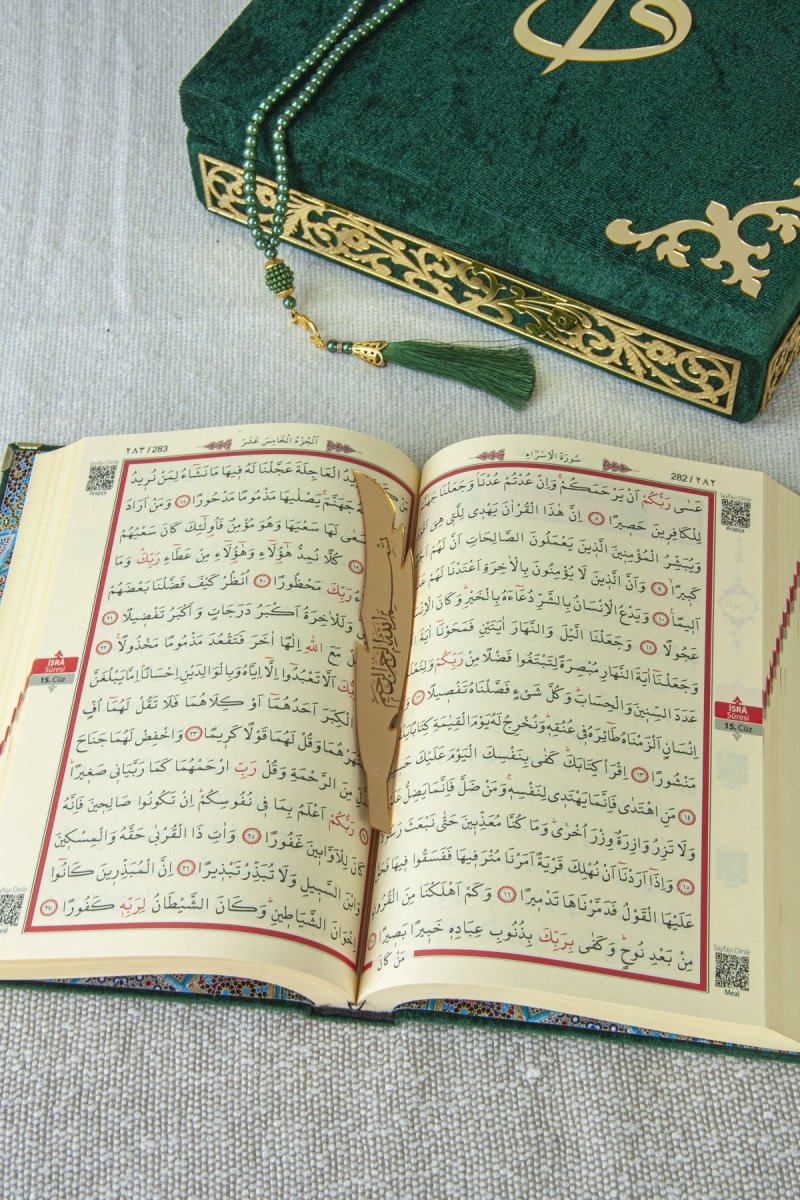 سُورَةُ الْاِسْرَاءِ
282/٢٨٢
عَسٰى رَبُّكُمْ اَنْ يَرْحَمَكُمْ وَاِنْ عُدْتُمْ عُدْنَا وَجَعَلْنَا
لِلْكَافِرِينَ حَصِيرًا ٨ اِنَّ هٰذَا الْقُرْاٰنَ يَهْدِى لِلَّتِى هِىَ
وَيُبَشِّرُ الْمُؤْمِنِينَ الَّذِينَ يَعْمَلُونَ الصَّالِحَاتِ اَنَّ لَهُمْ
كَبِيرًا ٩ وَاَنَّ الَّذِينَ لَا يُؤْمِنُونَ بِالْاٰخِرَةِ اَعْتَدْنَا لَهُمْ
اَلِيمًا ١٠ وَيَدْعُ الْاِنْسَانُ بِالشَّرِّ دُعَاءَهُ بِالْخَيْرِ وَكَانَ
عَجُولًا ١١ وَجَعَلْنَا الَّيْلَ وَالنَّهَارَ اٰيَتَيْنِ فَمَحَوْنَا اٰيَةَ
وَجَعَلْنَا اٰيَةَ النَّهَارِ مُبْصِرَةً لِتَبْتَغُوا فَضْلًا مِنْ رَبِّكُمْ وَلِتَعْلَمُوا
عَدَدَ السِّنِينَ وَالْحِسَابَ وَكُلَّ شَىْءٍ فَصَّلْنَاهُ تَفْصِيلًا ١٢
اِنْسَانٍ اَلْزَمْنَاهُ طَائِرَهُ فِى عُنُقِهِ وَنُخْرِجُ لَهُ يَوْمَ الْقِيٰمَةِ كِتَابًا
مَنْشُورًا ١٣ اِقْرَأْ كِتَابَكَ كَفٰى بِنَفْسِكَ الْيَوْمَ عَلَيْكَ
١٤ مَنِ اهْتَدٰى فَاِنَّمَا يَهْتَدِى لِنَفْسِهِ وَمَنْ ضَلَّ فَاِنَّمَا يَضِلُّ
وَلَا تَزِرُ وَازِرَةٌ وِزْرَ اُخْرٰى وَمَا كُنَّا مُعَذِّبِينَ حَتّٰى نَبْعَثَ رَسُولًا
١٥ وَاِذَا اَرَدْنَا اَنْ نُهْلِكَ قَرْيَةً اَمَرْنَا مُتْرَفِيهَا فَفَسَقُوا فِيهَا
عَلَيْهَا الْقَوْلُ فَدَمَّرْنَاهَا تَدْمِيرًا ١٦ وَكَمْ اَهْلَكْنَا مِنَ الْقُرُونِ
مِنْ بَعْدِ نُوحٍ وَكَفٰى بِرَبِّكَ بِذُنُوبِ عِبَادِهِ خَبِيرًا بَصِيرًا
مَنْ كَانَ
Sayfayı Dinle
Arapça
İSRÂ
Sûresi
15. Cüz
Sayfayı Dinle
Meal
اَلْجُزْءُ الْخَامِسَ عَشَرَ
٢٨٣/283
الْعَاجِلَةَ عَجَّلْنَا لَهُ فِيهَا مَا نَشَاءُ لِمَنْ نُرِيدُ
جَهَنَّمَ يَصْلٰيهَا مَذْمُومًا مَدْحُورًا ١٨ وَمَنْ اَرَادَ
لَهَا سَعْيَهَا وَهُوَ مُؤْمِنٌ فَاُولٰئِكَ كَانَ سَعْيُهُمْ
كُلًّا نُمِدُّ هٰؤُلَاءِ وَهٰؤُلَاءِ مِنْ عَطَاءِ رَبِّكَ وَمَا
رَبِّكَ مَحْظُورًا ٢٠ اُنْظُرْ كَيْفَ فَضَّلْنَا بَعْضَهُمْ
وَلَلْاٰخِرَةُ اَكْبَرُ دَرَجَاتٍ وَاَكْبَرُ تَفْضِيلًا ٢١
مَعَ اللّٰهِ اِلٰهًا اٰخَرَ فَتَقْعُدَ مَذْمُومًا مَخْذُولًا ٢٢
رَبُّكَ اَلَّا تَعْبُدُوا اِلَّا اِيَّاهُ وَبِالْوَالِدَيْنِ اِحْسَانًا اِمَّا يَبْلُغَنَّ
الْكِبَرَ اَحَدُهُمَا اَوْ كِلَاهُمَا فَلَا تَقُلْ لَهُمَا اُفٍّ
تَنْهَرْهُمَا وَقُلْ لَهُمَا قَوْلًا كَرِيمًا ٢٣ وَاخْفِضْ لَهُمَا جَنَاحَ
الذُّلِّ مِنَ الرَّحْمَةِ وَقُلْ رَبِّ ارْحَمْهُمَا كَمَا رَبَّيَانِى صَغِيرًا
رَبُّكُمْ اَعْلَمُ بِمَا فِى نُفُوسِكُمْ اِنْ تَكُونُوا صَالِحِينَ فَاِنَّهُ
كَانَ لِلْاَوَّابِينَ غَفُورًا ٢٥ وَاٰتِ ذَا الْقُرْبٰى حَقَّهُ وَالْمِسْكِينَ
وَابْنَ السَّبِيلِ وَلَا تُبَذِّرْ تَبْذِيرًا ٢٦ اِنَّ الْمُبَذِّرِينَ كَانُوا
اِخْوَانَ الشَّيَاطِينِ وَكَانَ الشَّيْطَانُ لِرَبِّهِ كَفُورًا ٢٧
Sayfayı Dinle
Arapça
İSRÂ
Sûresi
15. Cüz
Meal
بِسْمِ اللّٰهِ الرَّحْمٰنِ الرَّحِيمِ